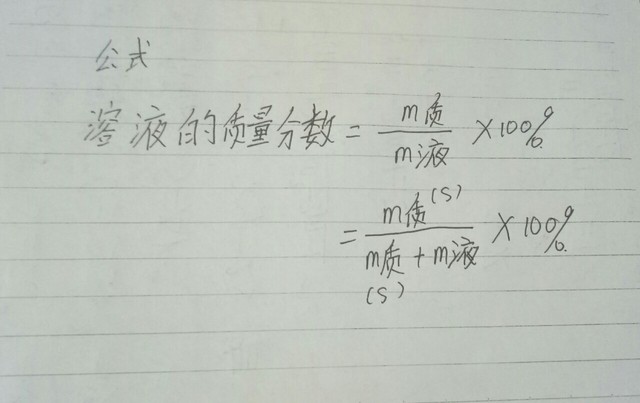 公式
溶液的质量分数 = m质/m液 ×100%
= m质(S)/m质(S)+m液 ×100%